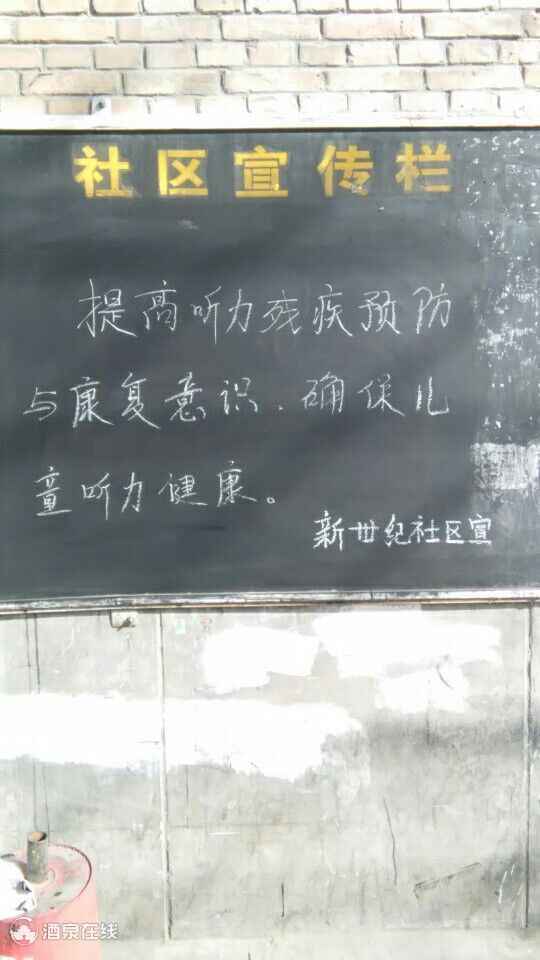 社区宣传栏
提高听力残疾预防
与康复意识.确保儿
童听力健康。
新世纪社区宣
酒泉在线